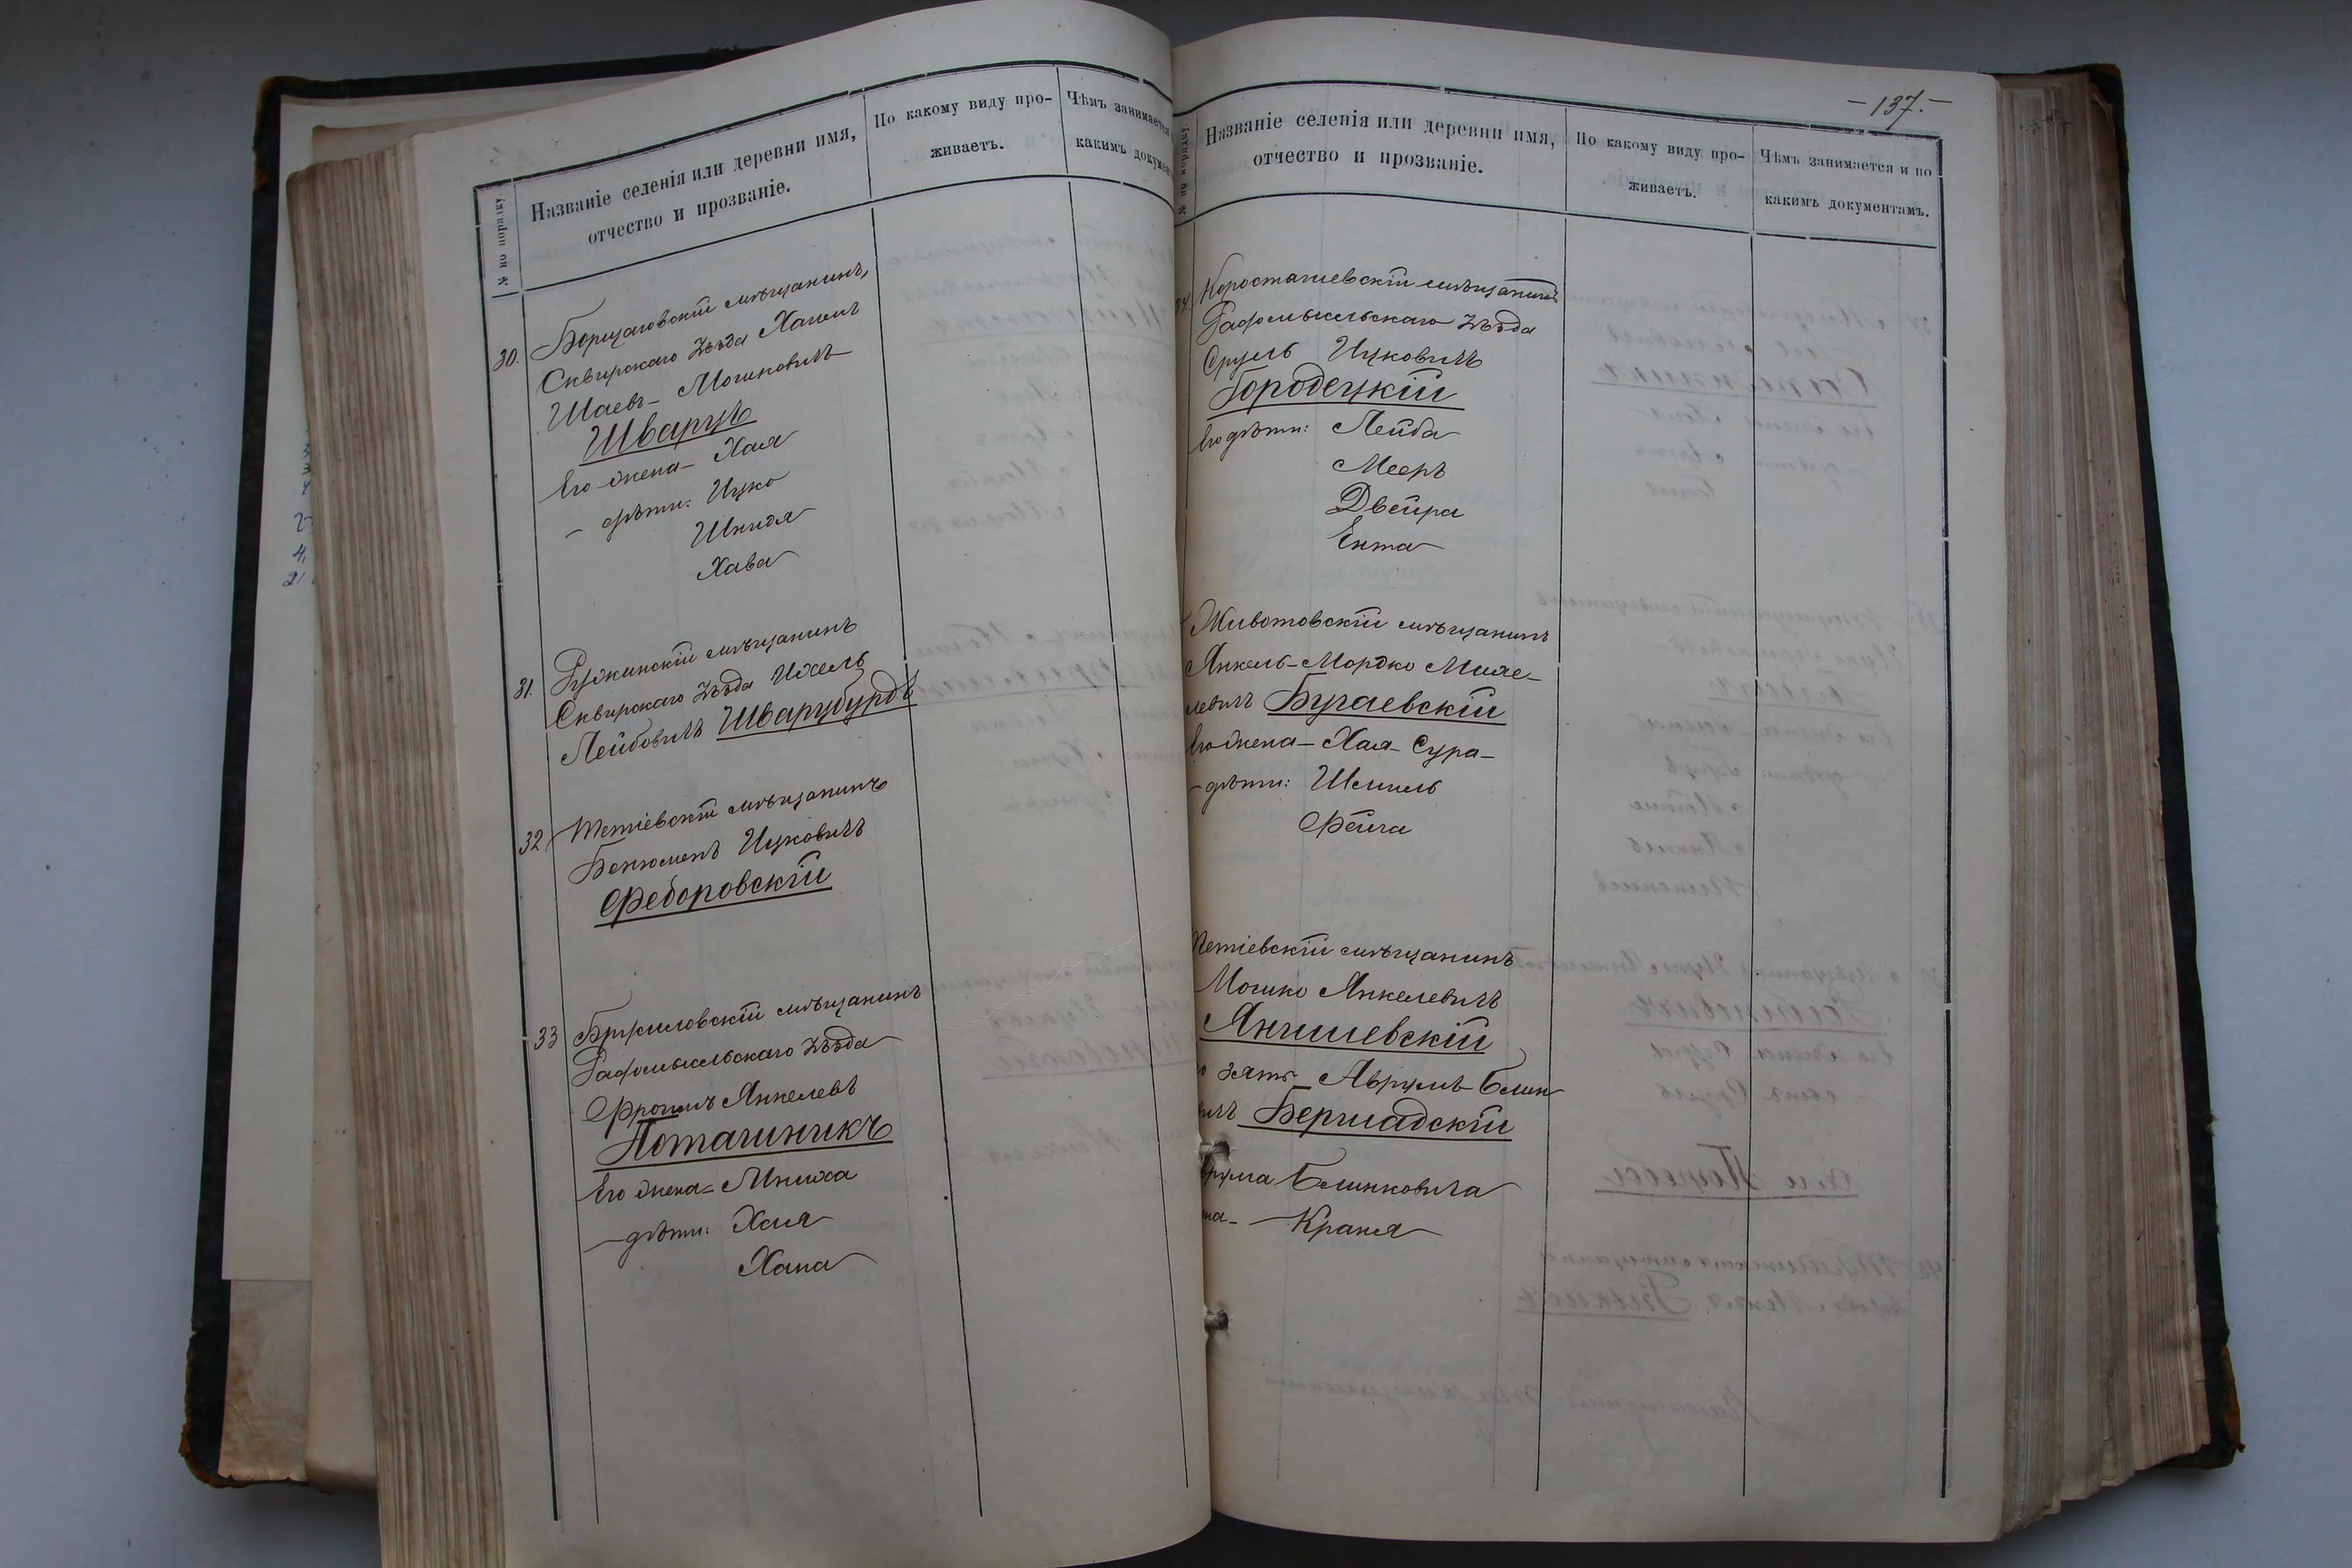 № по порядку.
Названіе селенія или деревни имя,
отчество и прозваніе.
По какому виду про-
живаетъ.
Чѣмъ занимается
какимъ докумен
30. Борщаговскій мѣщанинъ,
Сквирскаго уѣзда Хаимъ
Шаевъ-Мошковичъ
Шварцъ
Его жена - Хая
- дѣти: Ицко
Шейндля
Хава
31. Ружинскій мѣщанинъ
Сквирскаго уѣзда Ихель
Лейбовичъ Шварцбурдъ
32 Тетіевскій мѣщанинъ
Бенюменъ Ицковичъ
Федоровскій
33 Брусиловскій мѣщанинъ
Радомысльскаго уѣзда
Фроимъ Янкелевъ
Поташникъ
Его жена - Мниха
- дѣти: Хая
Хана
- 137. -
№ по порядку.
Названіе селенія или деревни имя,
отчество и прозваніе.
По какому виду про-
живаетъ.
Чѣмъ занимается и по
какимъ документамъ.
34 Коростышевскій мѣщанинъ
Радомысльскаго уѣзда
Сруль Ицковичъ
Городецкій
Его дѣти: Лейба
Мееръ
Двейра
Ента
Животовскій мѣщанинъ
Янкель-Мордко Михе-
левичъ Бугаевскій
Его жена - Хая-Сура -
- дѣти: Шмиль
Фейга
Тетіевскій мѣщанинъ
Мошко Янкелевичъ
Янчилевскій
о зять - Аврумъ Блин
вичъ Бершадскій
рума Блинковича
на - Крайня